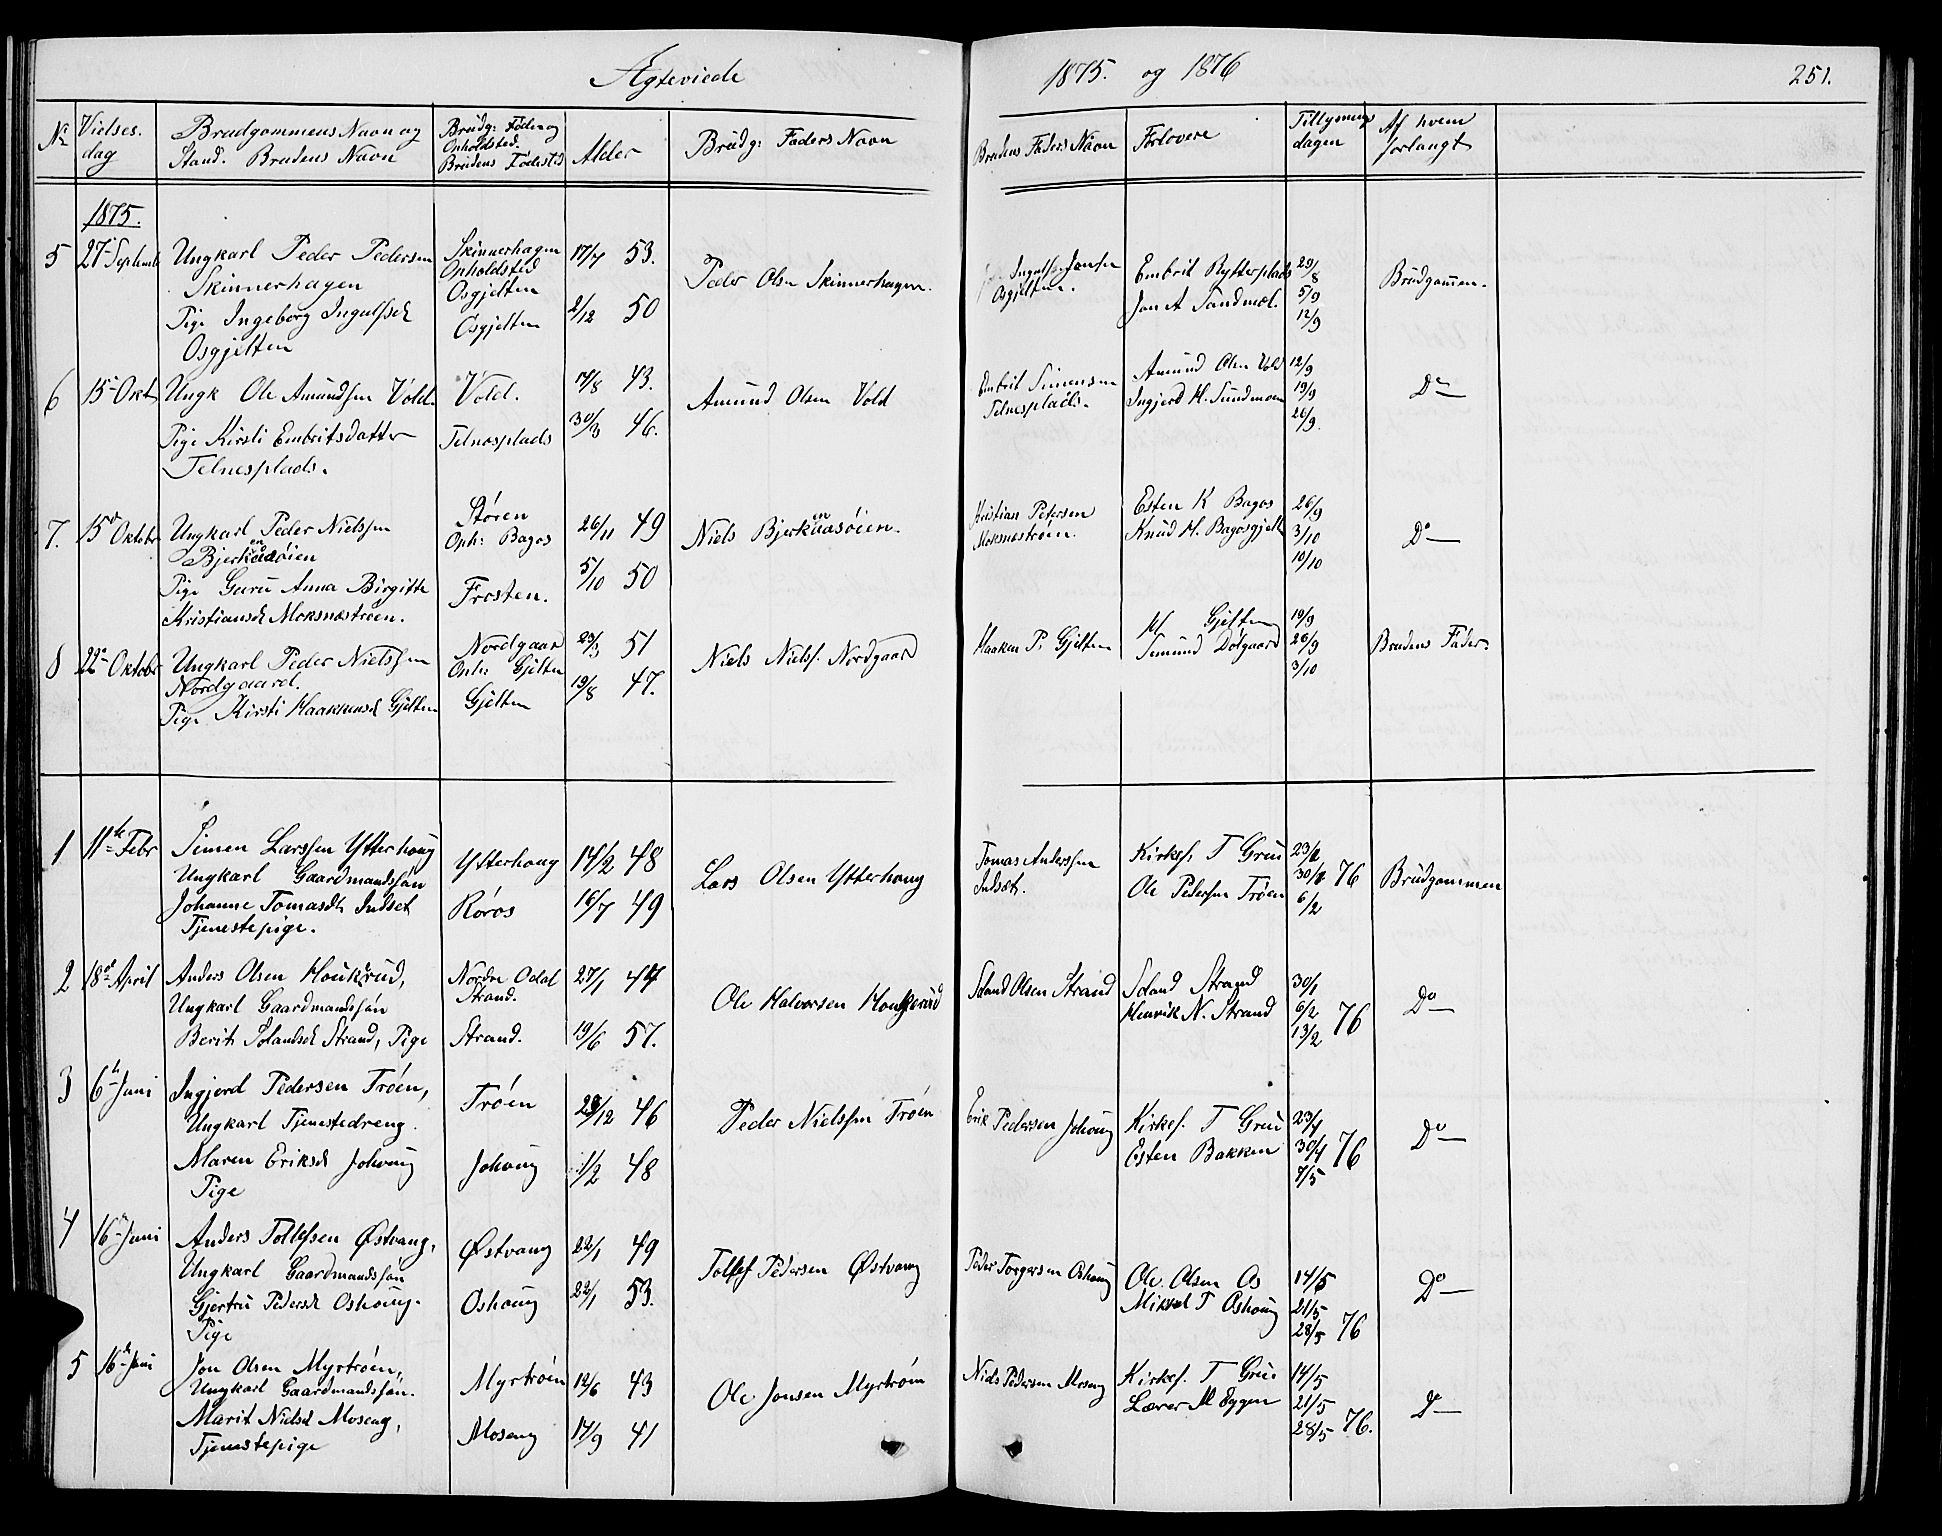 Ægteviede
1875. og 1876
251.
No
Vielses.
dag
Brudgommens Navn og
Stand. Brudens Navn
Brudg: Føde og
Opholdsted.
Brudens Fødested
Alder
Brudg: Faders Navn
Brudens Faders Navn
Forlovere
Tillysnings
dagen
Af hvem
forlangt
1875.
5 27 Septemb
Ungkarl Peder Pedersen
Skinnerhagen
Pige Ingeborg Ingulfsd
Osgjelten
Skinnerhagen
Opholdsted
Osgjelten
Osgjelten
17/7 53.
2/12 50
Peder Olsen Skinnerhagen.
Ingulf Jonsen
Osgjelten.
Embrit Rytterplads
Jon A Sandmæl.
29/8
5/9
12/9
Brudgommen.
6 15 Okt
Ungk Ole Amundsen Vold.
Pige Kirsti Embritsdatter
Telnesplads.
Vold.
Telnesplads
14/8 43.
30/3 46.
Amund Olsen Vold
Embrit Simensen
Telnesplads.
Amund Olsen Vold
Ingjerd H. Sundmoen
12/9
19/9
26/9.
Do
7. 15de Oktobr
Ungkarl Peder Nielssen
Bjerkenaasøien
Pige Guru Anna Birgitte
Kristiansd Moksnæstrøen.
Støren
Oph: Bagos
Frosten.
26/11 49
5/10 50
Niels Bjerkenaasøien.
Kristian Petersen
Moksnæstrøen.
Esten K Bagos
Knud H. Bagosgjelt
26/9
3/10
10/10
Do
8 22 Oktobr
Ungkarl Peder Nielssen
Nordgaard.
Pige Kirsti Haakkensd Gjelten
Nordgaar
Oph: Gjelten
Gjelten
23/3 51
19/8 47.
Niels Nielss. Nordgaard
Haaken P. Gjelten
Gjelten
Simund Dølgaard
19/9
26/9
3/10
Brudens Fader
1 11te Febr
Simen Larssen Ytterhoug
Ungkarl Gaardmandssøn
Johanne Tomasdt Indset
Tjenestepige.
Ytterhoug
Røros
14/2 48
16/7 49
Lars Olsen Ytterhoug
Tomas Anderssen
Indset.
Kirkes. T Gruu
Ole Pedersen Trøen
23/1
30/1 76
6/2
Brudgommen
2 18de April
Anders Olsen Houkerud,
Ungkarl Gaardmandssøn
Berit Solandsd Strand, Pige
Nordre Odal
Strand.
Strand.
27/1 44
19/6 57.
Ole Halvorsen Houkerud
Soland Olsen Strand
Soland Strand
Henrik N. Strand
30/1
6/2 76
13/2
Do
3 6te Juni
Ingjerd Pedersen Trøen,
Ungkarl Tjenestedreng.
Maren Eriksd Johoug
Pige
Trøen
Johoug
29/12 46
1/2 48
Peder Nielssen Trøen
Erik Pedersen Johoug
Kirkes. T Gruu
Esten Bakken
23/4
30/4 76
7/5
Do
4 16de Juni
Anders Tollefsen Østvang,
Ungkarl Gaardmandssøn
Gjertru Pedersd Oshoug.
Pige
Østvang
Oshoug
22/1 49
22/1 53.
Tollef Pedersen Østvang
Peder Torgersen Oshoug
Ole. Olsen Os
Mikkel T Oshoug
14/5
21/5
28/5 76
Do
5 16de Juni
Jon Olsen Myrtrøen,
Ungkarl Gaardmandssøn.
Marit Nielsd Moseng,
Tjenestepige
Myrtrøen
Moseng
12/6 43
14/9 41
Ole Jonsen Myrtrøen
Niels Pedersen Moseng
Kirkes. T Gruu
Lærer M Eggen
14/5
21/5
28/5 76.
Do